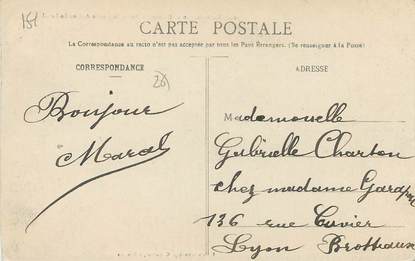 151
CARTE POSTALE
La Correspondance au recto n'est pas acceptée par tous les Pays Etrangers. (Se renseigner à la Poste)
CORRESPONDANCE
20
Bonjour
Marcel
ADRESSE
Mademoiselle
Gabrielle Charton
chez madame
136 rue Cuvier
Lyon Brotteaux